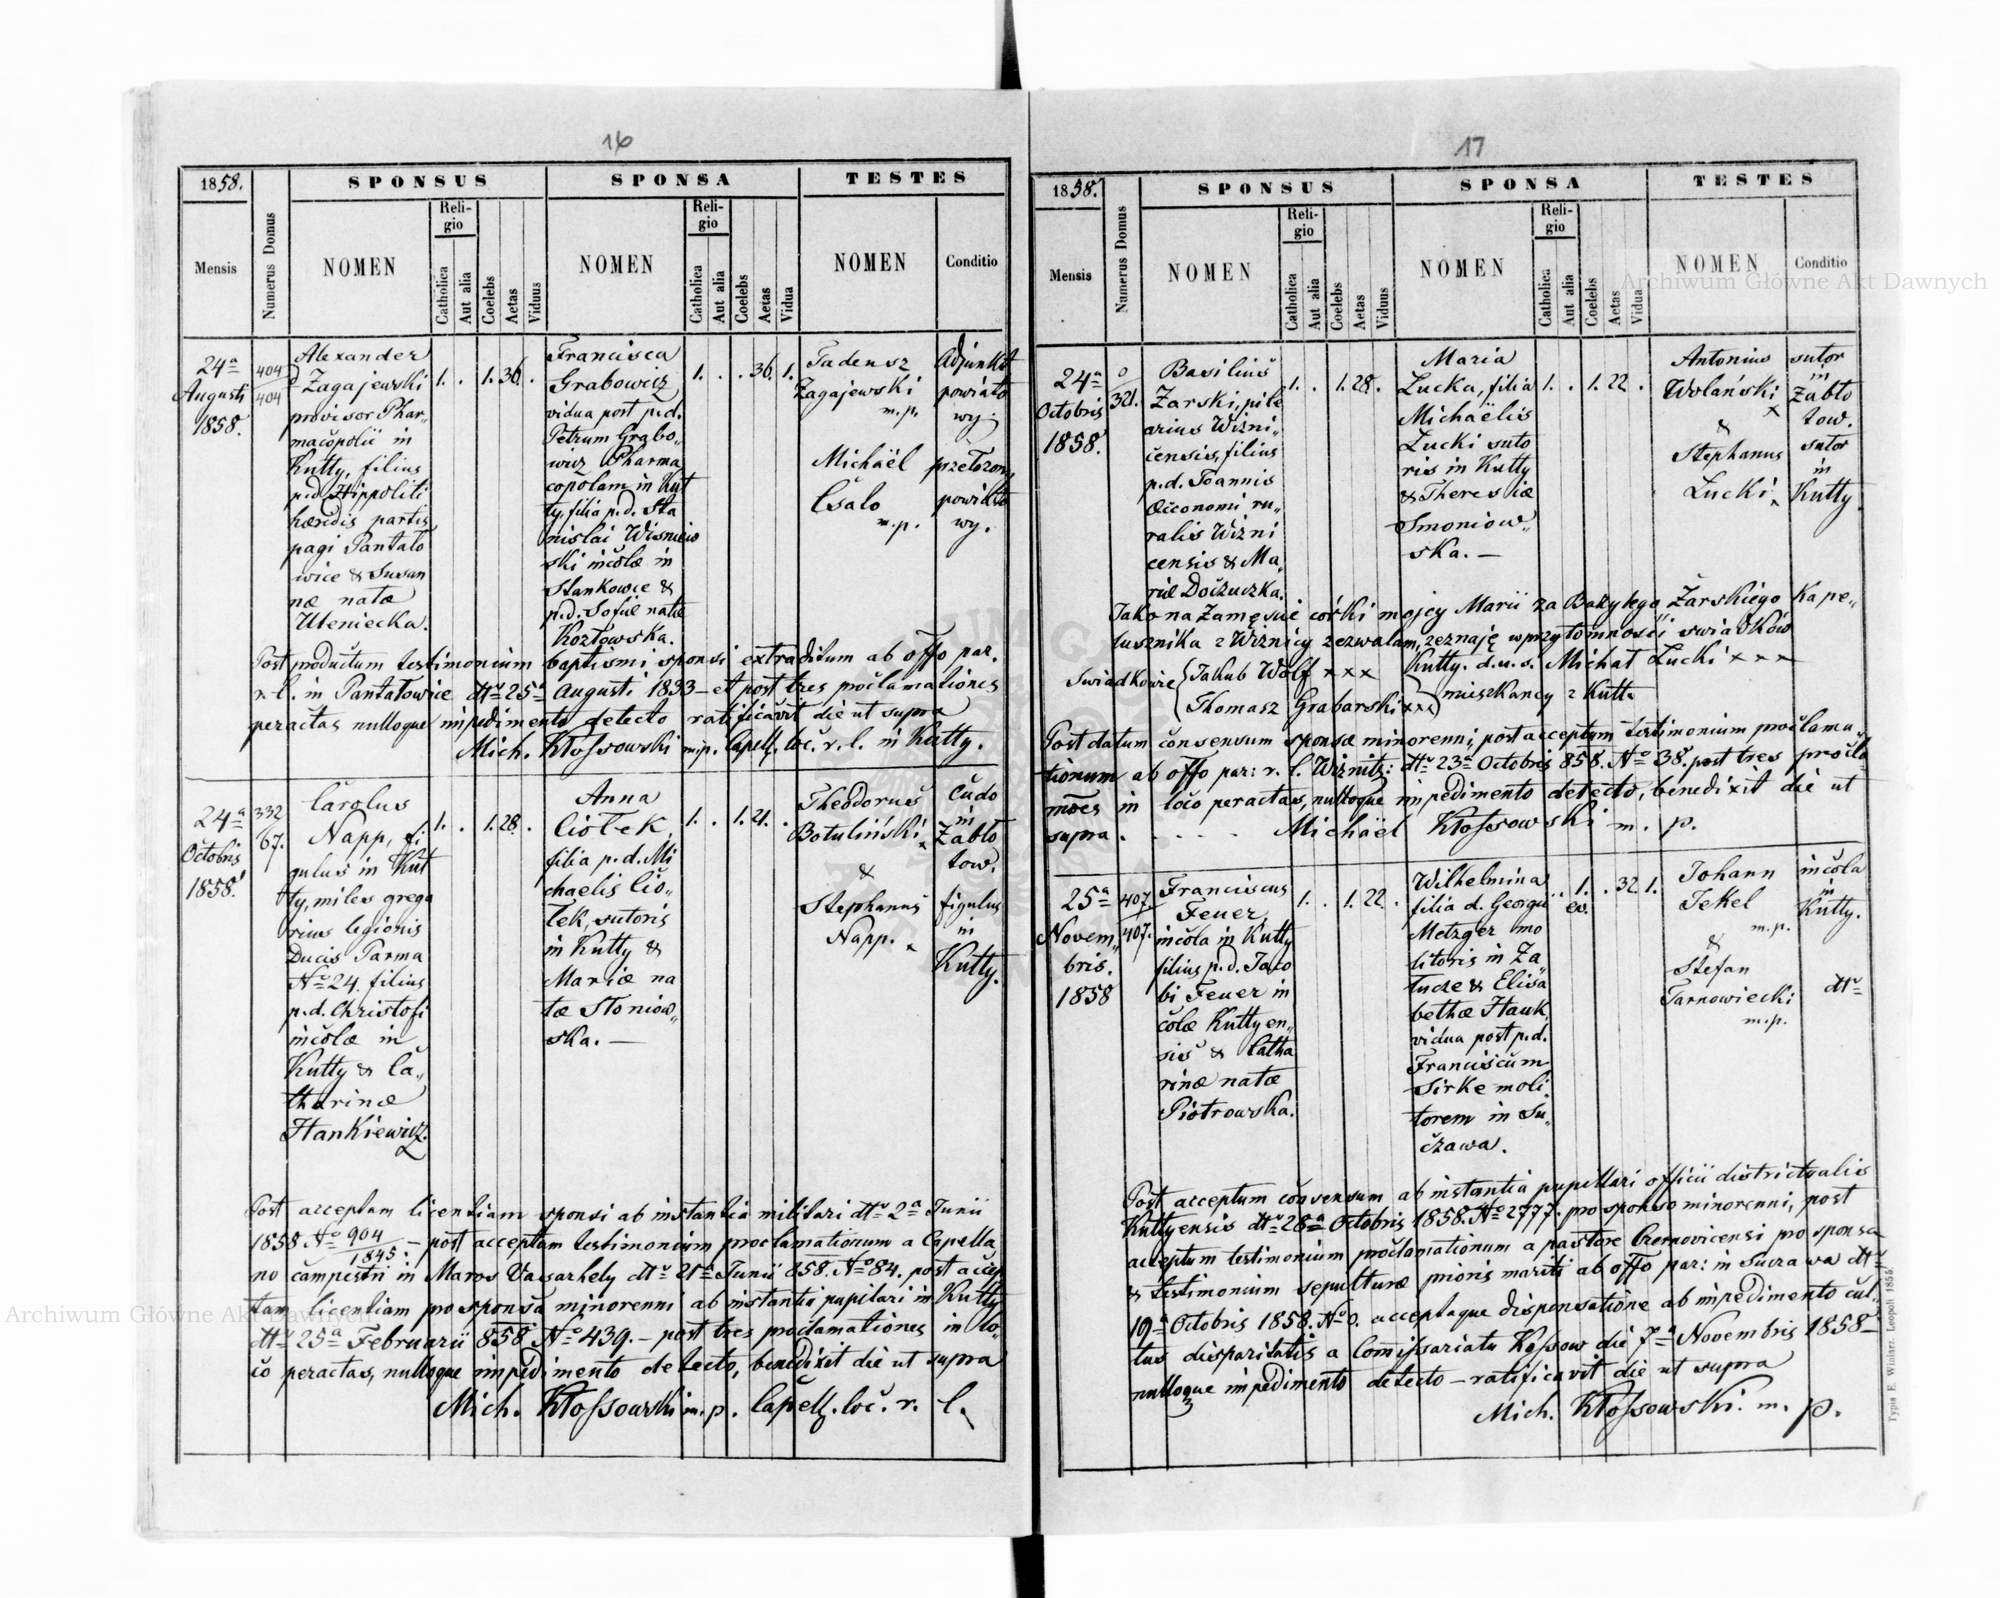 16
1858.
SPONSUS
SPONSA
TESTES
Mensis
Numerus Domus
NOMEN
Religio
Catholica
Aut alia
Coelebs
Aetas
Viduus
NOMEN
Religio
Catholica
Aut alia
Coelebs
Aetas
Vidua
NOMEN
Conditio
24a
Augusti
1858.
404
404
Alexander
Zagajewski
provisor Phar„
macopolii in
Kutty, filius
p.d. Hippoliti
hæredis partis
pagi Pantalo
wice & Susan
næ natæ
Uleniecka.
1. . 1. 36. .
Francisca
Grabowicz
vidua post p.d.
Petrum Grabo„
wicz Pharma
copolam in Kut
ty, filia p.d. Sta
nislai Wisniew
ski incolæ in
Stankowce &
p.d. Sofiæ natæ
Kozłowska.
1. . . 36. 1.
Tadeusz
Zagajewski
m.p.
Michäel
Csalo
m.p.
Adjunkt
powiato
wy.
przełożon
powiato
wy.
Post productum testimonium baptismi sponsi extraditum ab offo par.
r. l. in Pantalowice dtto 25a Augusti 1833 – et post tres proclamationes
peractas nulloque impedimento detecto ratificavit die ut supra
Mich. Kłossowski mp. Capell. loc. r. l. in Kutty.
24a
Octobris
1858.
332
67.
Carolus
Napp, fi„
gulus in Kut
ty, miles grega
rius legionis
Ducis Parma
No 24. filius
p.d. Christofi
incolæ in
Kutty & Ca„
tharinæ
Hankiewicz.
1. . 1. 28. .
Anna
Ciołek,
filia p.d. Mi
chaelis Cio„
łek, sutoris
in Kutty &
Mariæ na
tæ Słoniow„
ska. —
1. . 1. 21. .
Theodorus
Botuliński x
&
Stephanus
Napp. x
Cudo
in
Zabło
tow.
figulus
in
Kutty.
Post acceptam licentiam sponsi ab instantia militari dtto 2a Junii
1858 No 904/1845. – post acceptum testimonium proclamationum a Capella
no campestri in Maros Vasarhely dtto 21a Junii 858. No 84. post accep
tam licentiam pro sponsa minorenni ab instantia pupilari in Kutty
dtto 25a Februarii 858 No 439. – post tres proclamationes in lo„
co peractas, nulloque impedimento detecto, benedixit die ut supra
Mich. Kłossowski m. p. Capell. loc. r. l.
17
1858.
SPONSUS
SPONSA
TESTES
Mensis
Numerus Domus
NOMEN
Religio
Catholica
Aut alia
Coelebs
Aetas
Viduus
NOMEN
Religio
Catholica
Aut alia
Coelebs
Aetas
Vidua
NOMEN
Conditio
24a
Octobris
1858.
0
321.
Basilius
Zarski, pile
arius Wizni„
censis, filius
p.d. Joannis
Oeconomi ru„
ralis Wizni
censis & Ma„
riæ Doczuczka.
1. . 1. 28. .
Maria
Lucka, filia
Michaëlis
Lucki suto
ris in Kutty
& Theresiæ
Smoniow„
ska. —
1. . 1. 22. .
Antonius
Wolański
x
&
Stephanus
Lucki x
sutor
in
Zabło
tow.
sutor
in
Kutty.
Jako na Zamęście córki mojej Marii za Bazylego Żarskiego Kape„
lusznika z Wiźnicy zezwalam, zeznaję w przytomności świadków
Kutty. d.u.s. Michał Lucki x x x
Swiadkowie { Jakub Wolf x x x
Thomasz Grabarski xxx } mieszkancy z Kutt.
Post datum consensum sponsæ minorenni, post acceptum testimonium proclama„
tionum ab offo par: r. l. Wiznitz: dtto 23a Octobris 858. No 38. post tres procla„
mões in loco peractas, nulloque impedimento detecto, benedixit die ut
supra. . . . . Michäel Kłossowski m. p.
25a
Novem„
bris.
1858
407.
407.
Franciscus
Feuer,
incola in Kutty
filius p.d. Jaco
bi Feuer in
colæ Kuttyen„
sis & Catha
rinæ natæ
Piotrowska.
1. . 1. 22. .
Wilhelmina
filia d. Georgii
Metzger mo
litoris in Za„
lucze & Elisa
bethæ Hauk,
vidua post p.d.
Franciscum
Sirke moli„
torem in Su„
czawa.
. . 1. . 32. 1.
ev.
Johann
Jekel
m.p.
&
Stefan
Tarnowiecki
m.p.
incola
in
Kutty.
dtto
Post acceptum consensum ab instantia pupillari officii districtualis
Kuttyensis dtto 28a Octobris 1858. No 2777. pro sponso minorenni, post
acceptum testimonium proclamationum a pastore Czernovicensi pro sponsa
& testimonium sepulturæ prioris mariti ab offo par: in Sucrawa dtto
19a Octobris 1858. No 0. acceptaque dispensatione ab impedimento cul„
tus disparitatis a Comissariatu Kossow die 7a Novembris 1858 –
nulloque impedimento detecto – ratificavit die ut supra
Mich. Kłossowski. m. p.
Typis E. Winiarz. Leopoli 1855.
Archiwum Główne Akt Dawnych
Archiwum Główne Akt Dawnych